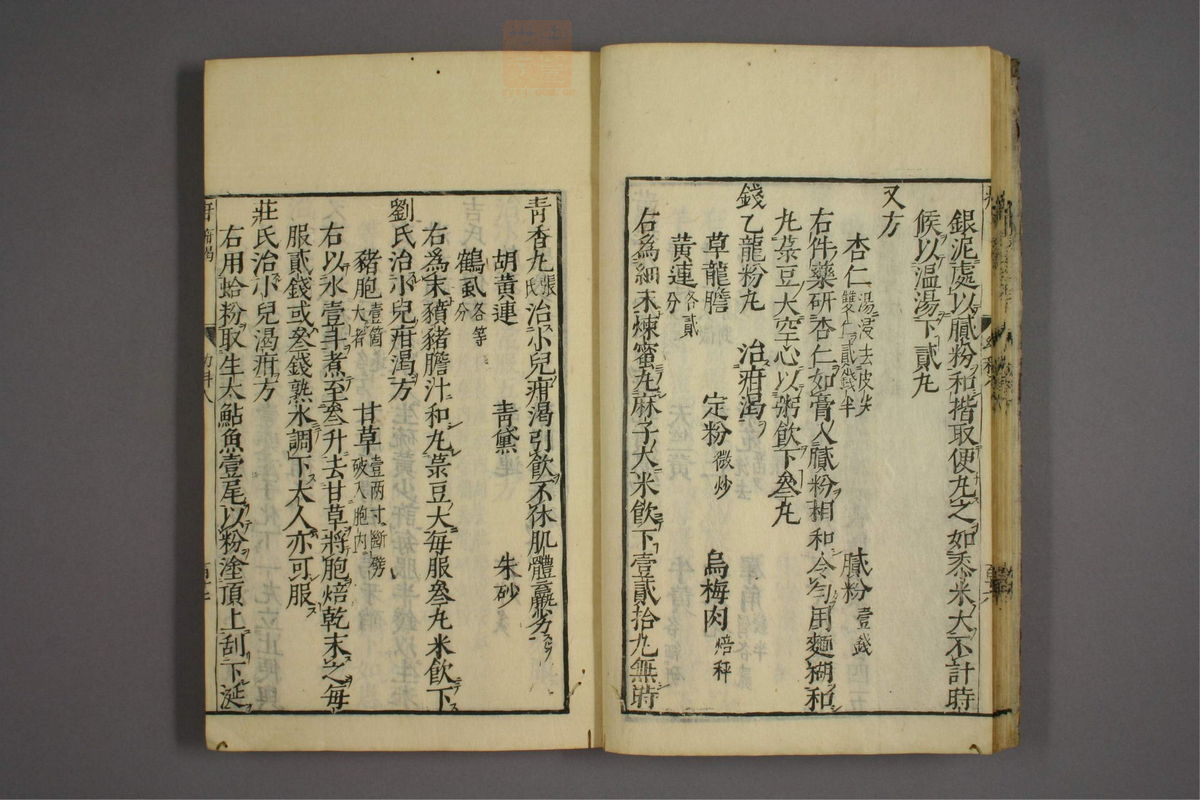 銀泥處以膩粉和揩取便丸之如黍米大不計時
候以温湯下貳丸
又方
杏仁湯浸去皮尖雙仁貳錢半 膩粉壹錢
右件藥研杏仁如膏入膩粉相和令勻用麵糊和
丸菉豆大空心以粥飲下叄丸
錢乙龍粉丸 治疳渴
草龍膽 定粉微炒 烏梅肉焙秤
黄連各貳分
右為細末煉蜜丸麻子大米飲下壹貳拾丸無時
青香丸張氏治小兒疳渴引飲不休肌體羸劣
胡黄連 青黛 朱砂
鶴虱各等分
右為末豶猪膽汁和丸菉豆大每服叄丸米飲下
劉氏治小兒疳渴方
猪胞壹箇大者 甘草壹两寸斷劈破入胞内
右以水壹斗煮至叄升去甘草將胞焙乾末之每
服貳錢或叄錢熟水調下大人亦可服
莊氏治小兒渴疳方
右用蛤粉取生太鮎魚壹尾以粉塗頂上刮下涎